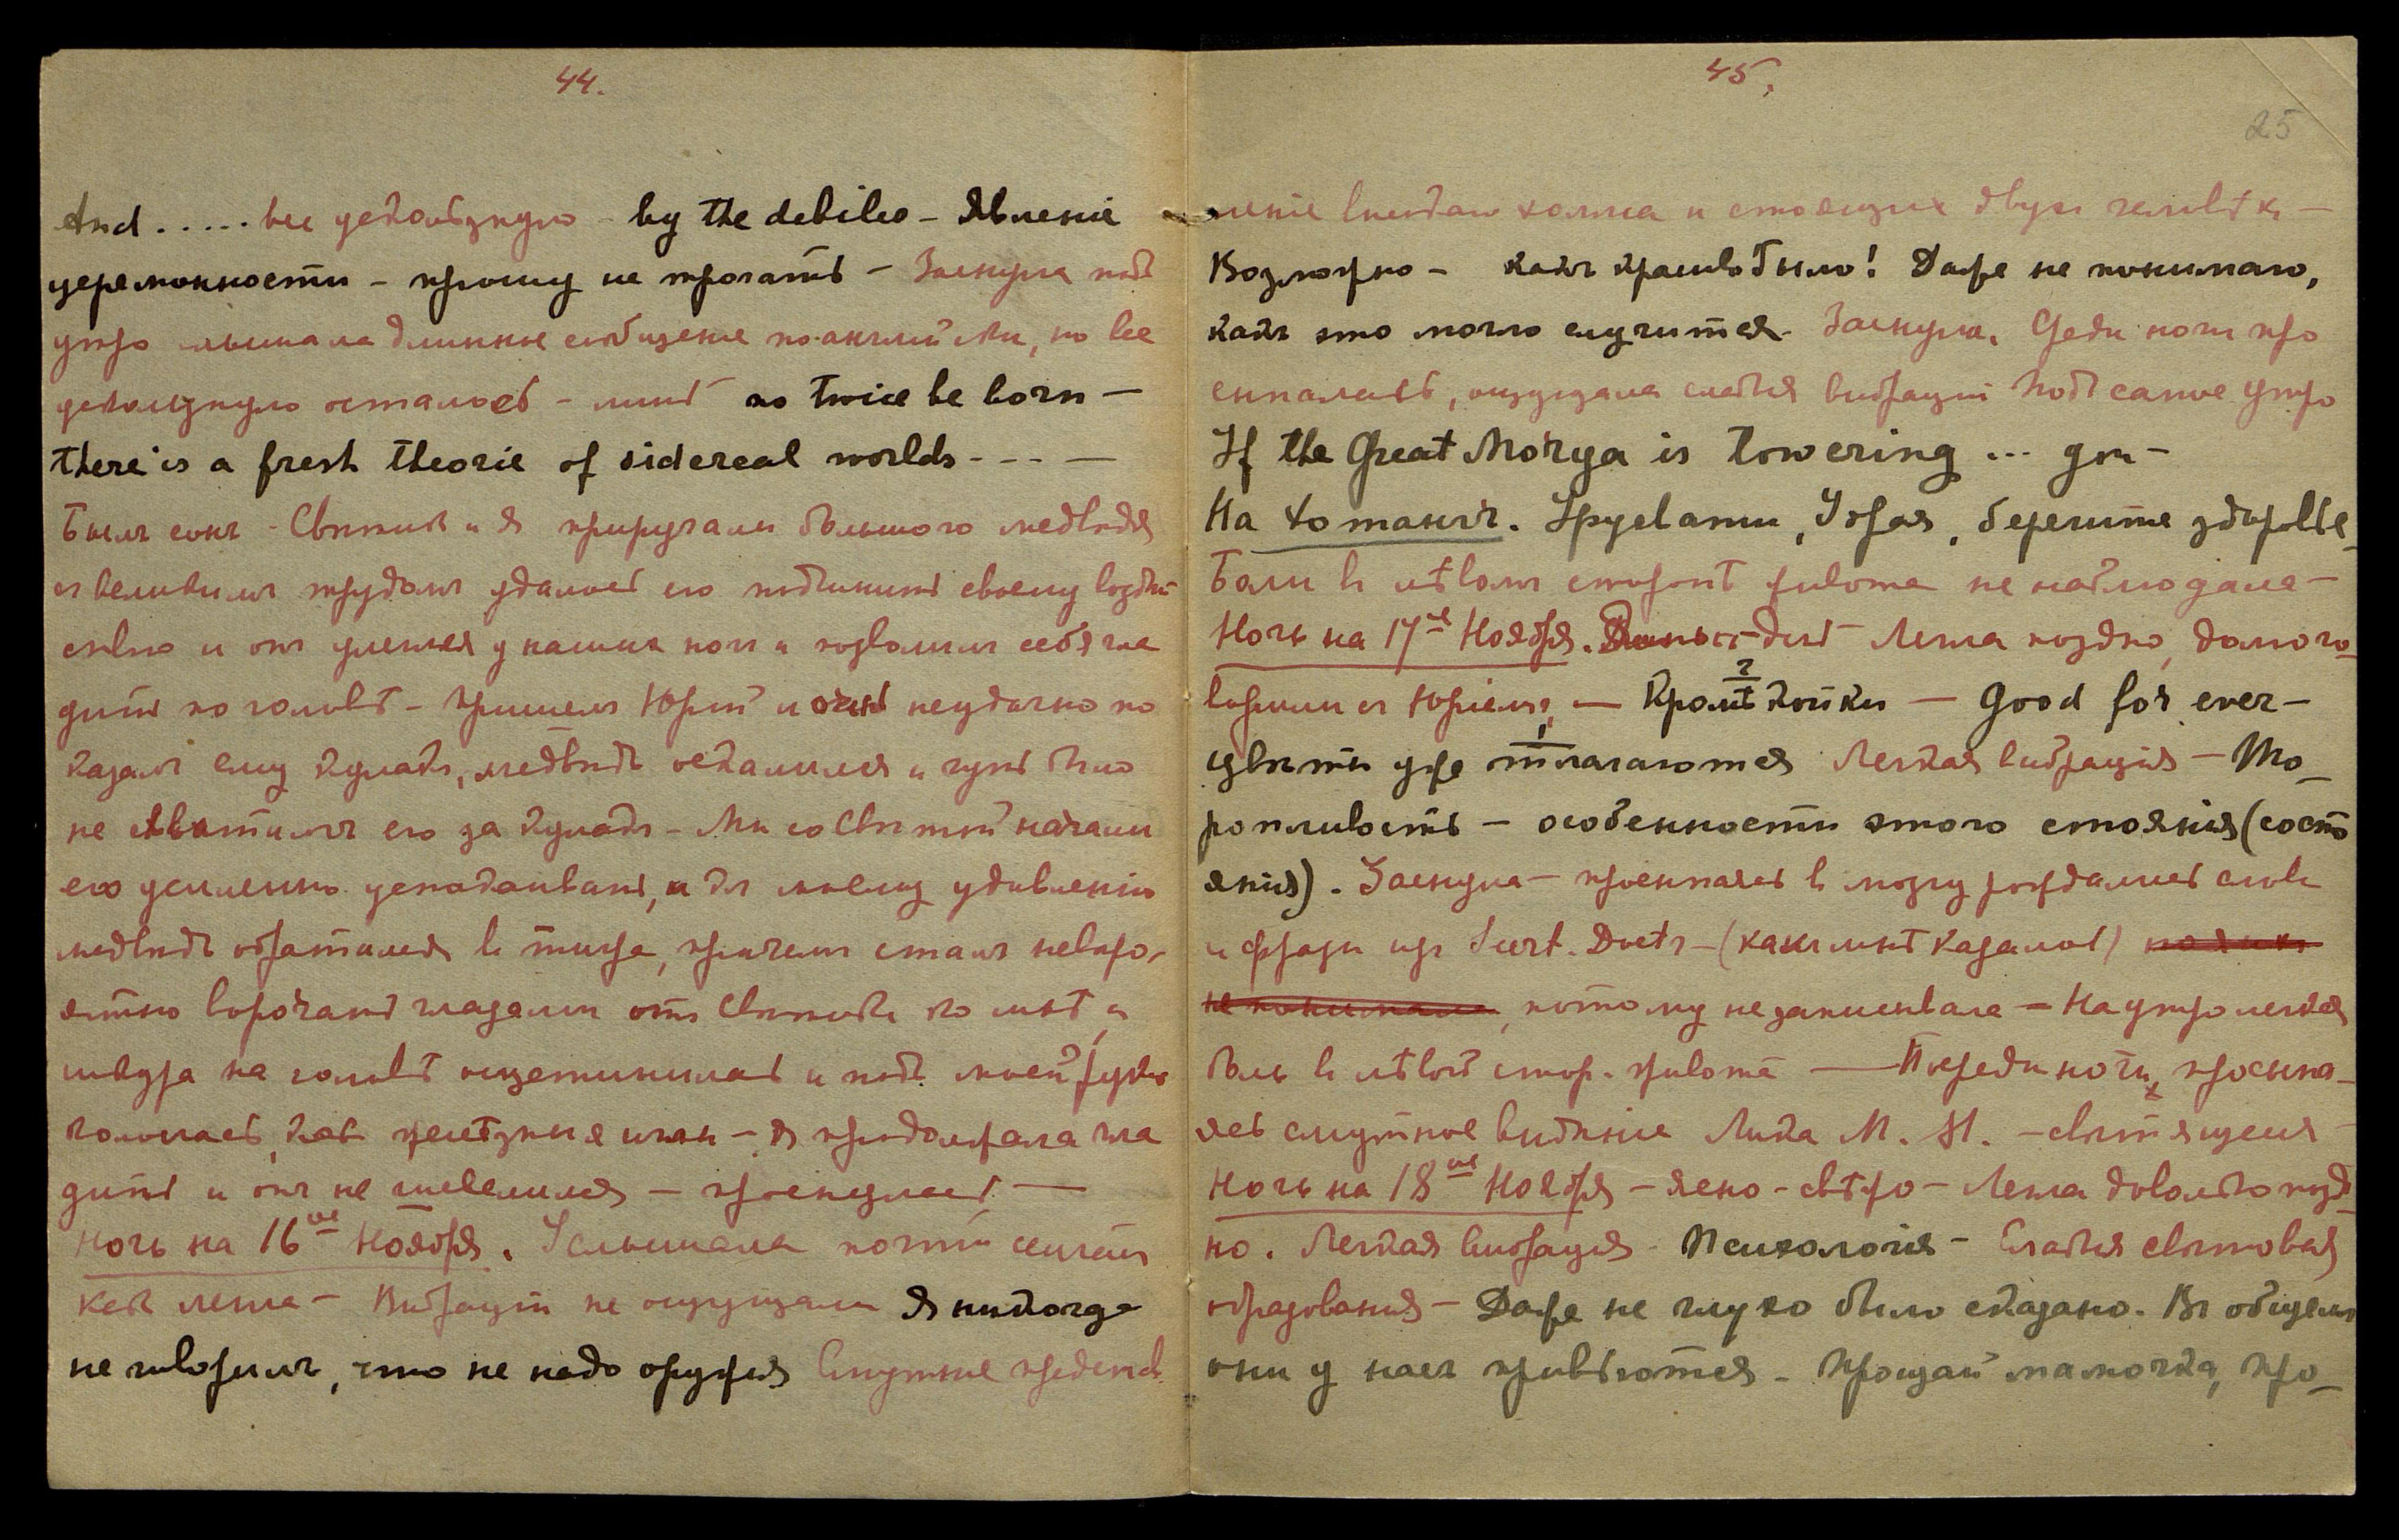 44.
And ..... все ускользнуло - by the debileo - Явленiе
церемонности - прошу не трогать - Заснула подъ
утро слышала длинное сообщенiе по англiйски, но все
ускользнуло осталось - лишь no twice be born -
there is a fresh theorie of sidereal worlds - - - -
Былъ сонъ - Светикъ и я приручали большого медвъдя
съ великимъ трудомъ удалось его подчинить своему воздѣй-
ствiю и онъ улегся у нашихъ ногъ и позволилъ себя гла
дить по головѣ - Пришелъ Юрiй и очень неудачно по
казалъ ему кулакъ, медвѣдь оскалился и чуть было
не схватилъ его за кулакъ - Мы со Светикомъ начали
его усиленно успокаивать, и къ моему удивленiю
медвѣдь обратился в тигра, причемъ сталъ невѣро-
ятно ворочать глазами отъ Светика ко мнѣ и
шкура на головѣ ощетинилась и подъ моей рукой
кололась, какъ желѣзныя иглы - Я продолжала гла
дить и онъ не шевелился - проснулась. -
Ночь на 16ое Ноября. Услышала почти сейчасъ
какъ легла - Вибрацiй не ощущала Я никогда
не говорилъ, что не надо оружiя Смутное представ
45.
25
ленiе холма и стоящихъ двухъ человѣкъ -
Возможно - какъ красиво было! Даже не понимаю,
какъ это могло случится. Заснула. Среди ночи про
сыпалась, ощущала слабыя вибрацiи Подъ самое утро
If the Great Morya is towering ... gon -
На Хотанъ. Урусвати, Удрая, берегите здоровье
Боли в лѣвомъ сторонѣ живота не наблюдала -
Ночь на 17ое Ноября. Легла поздно, долго го-
ворили съ Юрiемъ, - Кромѣ ? - Good for ever -
цвѣты уже отлагаются Легкая вибрацiя - То-
ропливость - особенности этого стоянiя (состо
янiя). Заснула - просыпаясь в мозгу рождались слова
и фразы изъ Secret. Doctr - (какъ мнѣ казалось) но я ихъ
не понимала, потому не записывала - На утро легкая
боль в лѣвой стор. живота - Посреди ночи, просыпа-
ясь смутное видѣнiе Лика М. М. - свѣтящееся -
Ночь на 18ое Ноября - ясно - свѣтло - Легла довольно позд
но. Легкая вибрацiя - Психологiя - Слабыя свѣтовыя
образованiя - Даже не глухо было сказано. Въ общемъ
они у насъ привьются - Прощай мамочка, про-